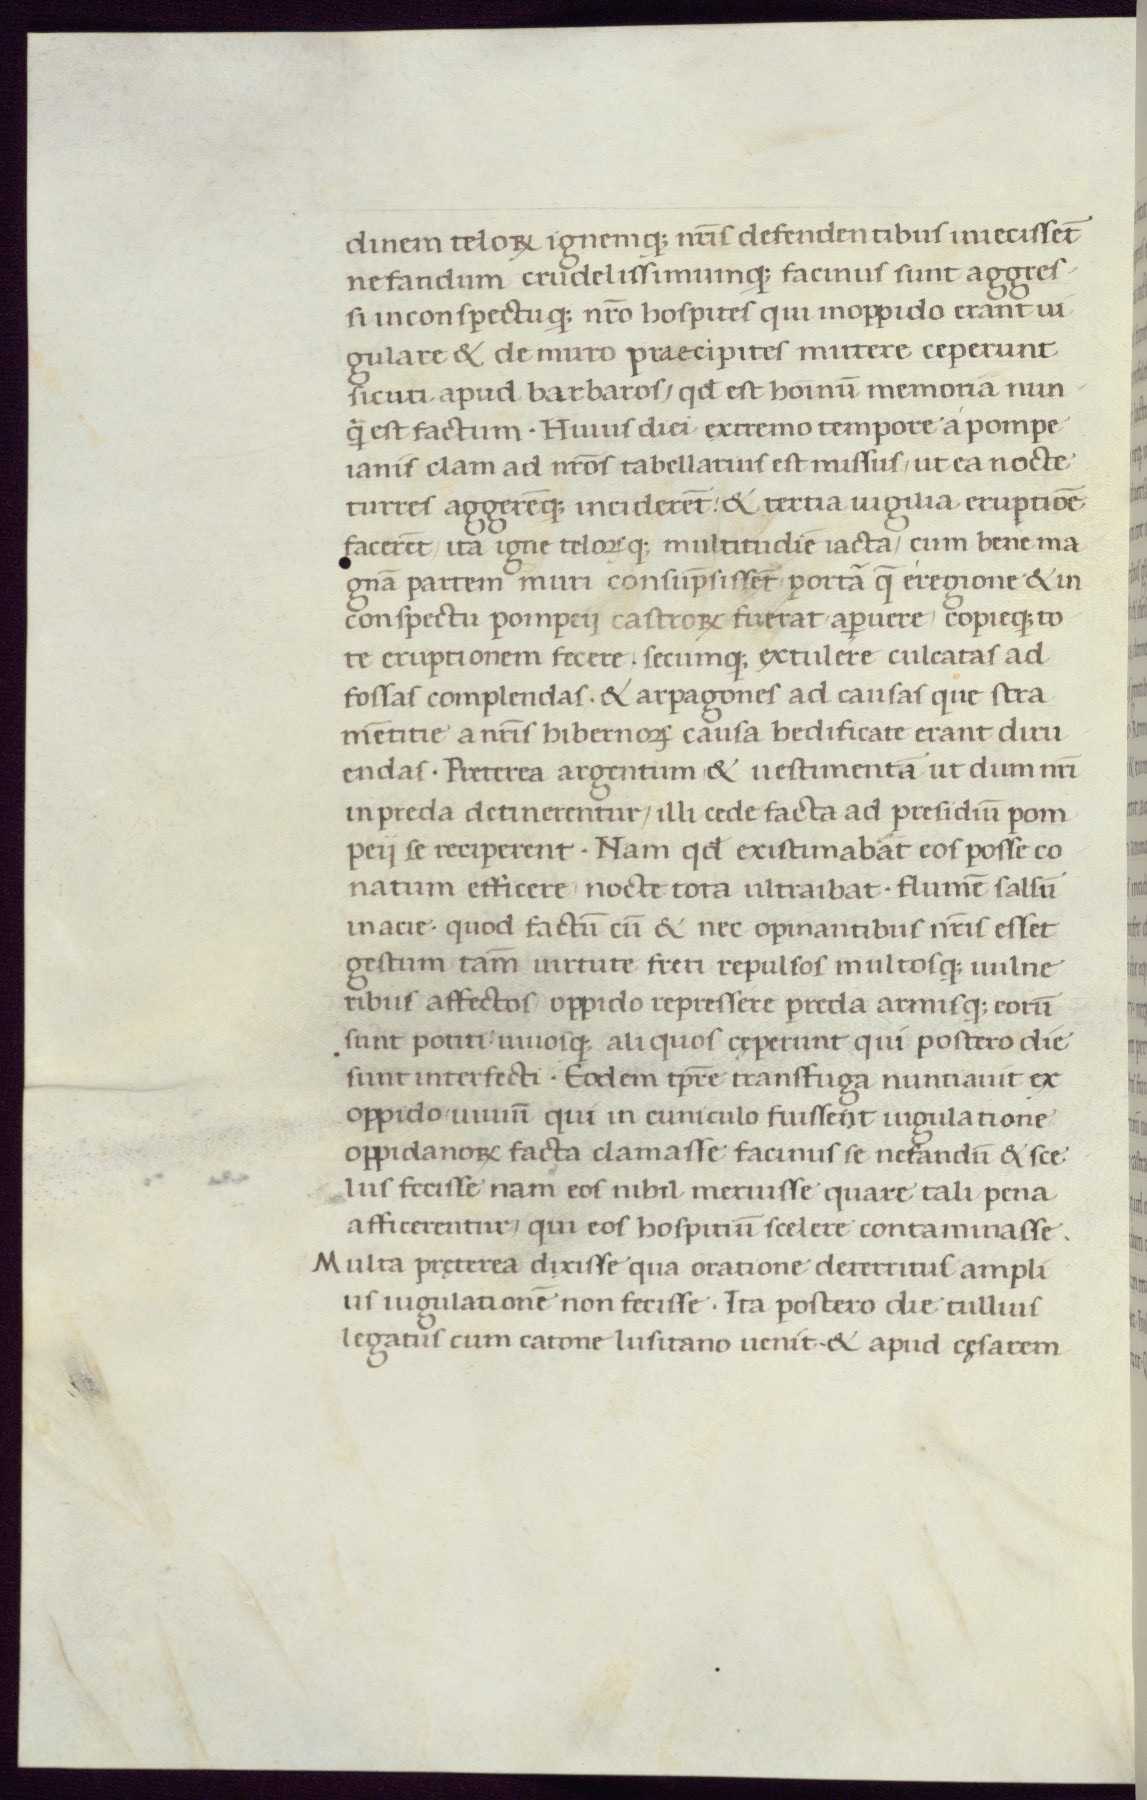 dinem teloꝝ ignemq; nr̄is defendentibus iniecisset̄
nefandum crudelissimumq; facinus sunt aggres-
si inconspectuq; nr̄o hospites qui inoppido erant iu
gulare & de muro praecipites mittere ceperunt
sicuti apud barbaros/ qđ est hoīnū memoria nun
q̄ est factum · Huius diei extremo tempore á pompe
ianis clam ad nr̄os tabellarius est missus/ ut ea nocte
turres aggerēq; inciderēt: & tertia uigilia eruptiōe
facerēt/ ita igne teloꝝq; multitudīe iacta/ cum bene ma
gnā partem muri consūpsissēt/ portā q̄ éregione & in
conspectu pompeij castroꝝ fuerat apuere/ copieq; to
te eruptionem fecere · secumq; extulere culcatas ad
fossas complendas · & arpagones ad causas que stra
mētitie a nr̄is hibernoꝝ causa hedificate erant diru
endas · Preterea argentum & uestimenta ut dum nr̄i
inpreda detinerentur/ illi cede facta ad presidiū pom
peij se reciperent · Nam qđ existimabāt eos posse co
natum efficere/ nocte tota ultraibat · flumē salsū
inacie · quod factū cū & nec opinantibus nr̄is esset
gestum tam̄ uirtute freti repulsos multosq; uulne
ribus affectos/ oppido repressere preda armisq; eorū
sunt potiti uiuosq; aliquos cęperunt qui postero die
sunt interfecti · Eodem tp̄re transfuga nuntiauit ex
oppido/ uiuiū qui in cuniculo fuissent iugulatione
oppidanoꝝ facta clamasse facinus se nefandū & sce
lus fecisse nam eos nihil meruisse quare tali pena
afficerentur/ qui eos hospitiū scelere contaminasse .
Multa pręterea dixisse qua oratione deterritus ampli
us iugulationē non fecisse · Ita postero die tullius
legatus cum catone lusitano uenit · & apud cęsarem